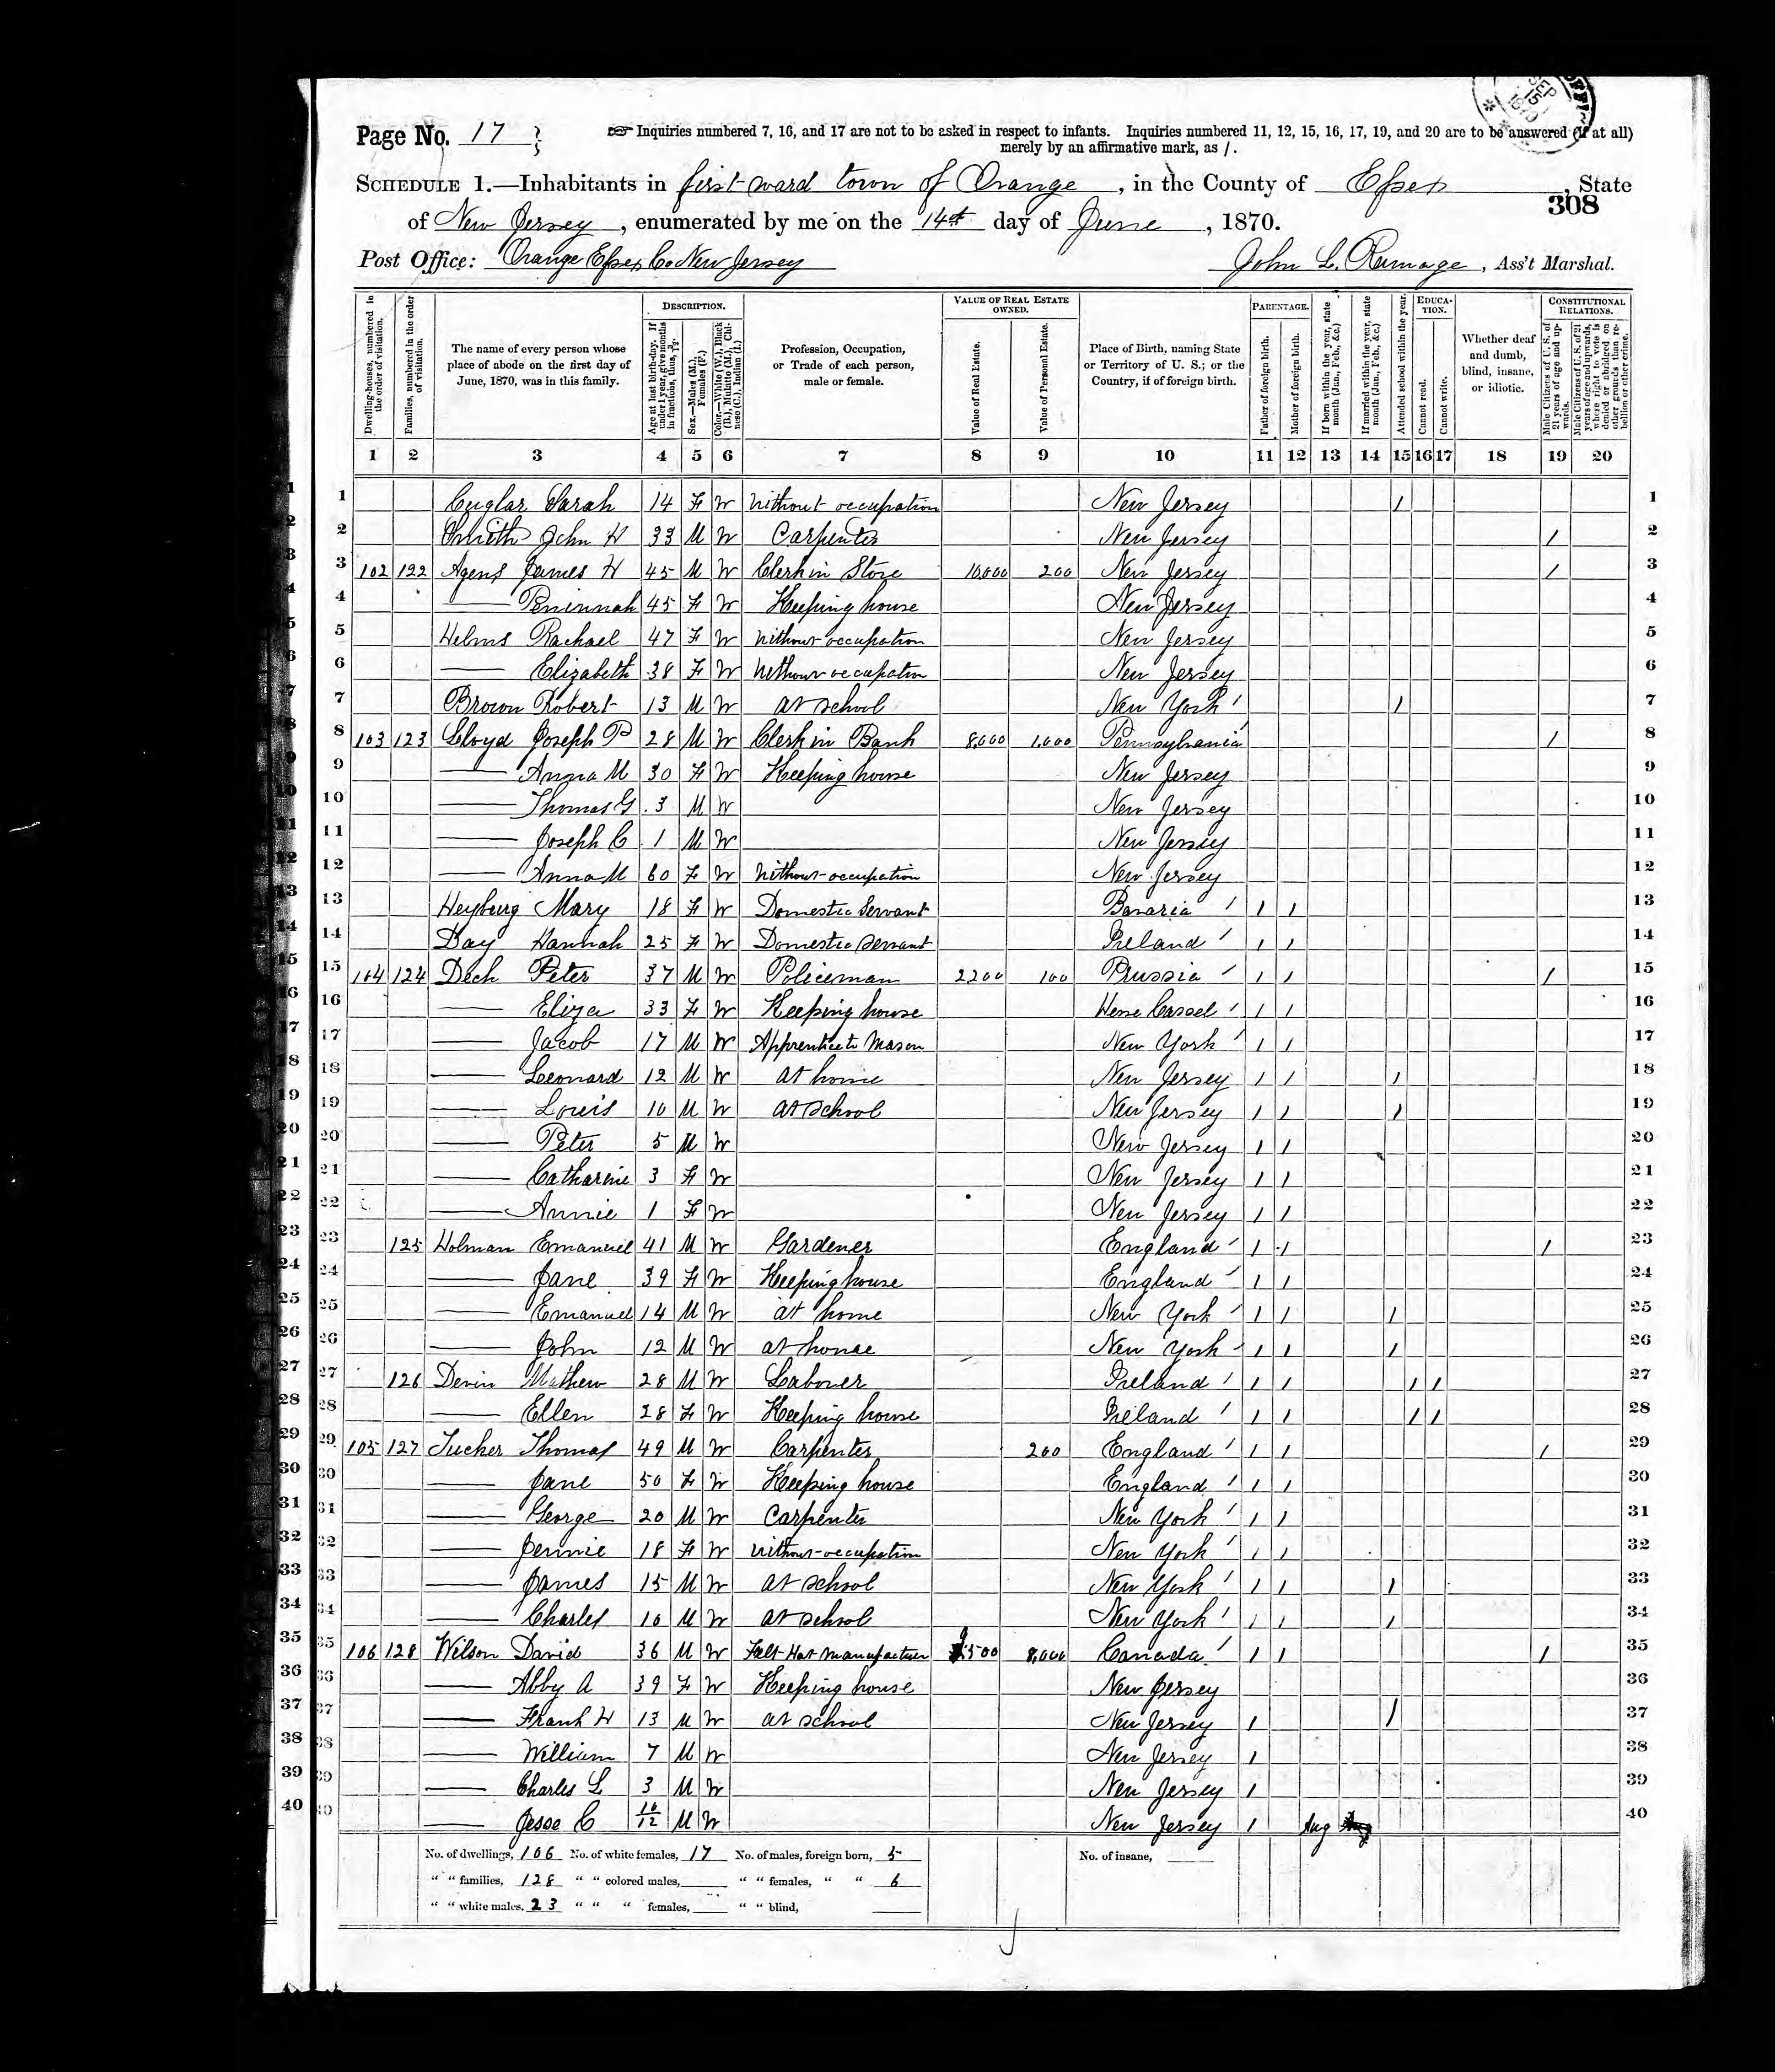 Page No. 17
☞ Inquiries numbered 7, 16, and 17 are not to be asked in respect to infants. Inquiries numbered 11, 12, 15, 16, 17, 19, and 20 are to be answered (if at all)
merely by an affirmative mark, as /.
SCHEDULE 1.—Inhabitants in first ward town of Orange, in the County of Essex, State
308
of New Jersey, enumerated by me on the 14th day of June, 1870.
Post Office: Orange Essex Co New Jersey John L. Rumage, Ass't Marshal.
Dwelling-houses, numbered in the order of visitation.
Families, numbered in the order of visitation.
The name of every person whose place of abode on the first day of June, 1870, was in this family.
DESCRIPTION.
Age at last birth-day. If under 1 year, give months in fractions, thus, 3/12.
Sex.—Males (M.), Females (F.)
Color.—White (W.), Black (B.), Mulatto (M.), Chinese (C.), Indian (I.)
Profession, Occupation, or Trade of each person, male or female.
VALUE OF REAL ESTATE OWNED.
Value of Real Estate.
Value of Personal Estate.
Place of Birth, naming State or Territory of U. S.; or the Country, if of foreign birth.
PARENTAGE.
Father of foreign birth.
Mother of foreign birth.
If born within the year, state month (Jan., Feb., &c.)
If married within the year, state month (Jan., Feb., &c.)
Attended school within the year.
EDUCATION.
Cannot read.
Cannot write.
Whether deaf and dumb, blind, insane, or idiotic.
CONSTITUTIONAL RELATIONS.
Male Citizens of U. S. of 21 years of age and upwards.
Male Citizens of U. S. of 21 years of age and upwards, where right to vote is denied or abridged on other grounds than rebellion or other crime.
1 2 3 4 5 6 7 8 9 10 11 12 13 14 15 16 17 18 19 20
1 Cuglar Sarah 14 F W Without occupation New Jersey / 1
2 Smith John H 33 M W Carpenter New Jersey / 2
3 102 122 Agens James H 45 M W Clerk in Store 10,000 200 New Jersey / 3
4 —— Peninnah 45 F W Keeping house New Jersey 4
5 Helms Rachael 47 F W Without occupation New Jersey 5
6 —— Elizabeth 38 F W Without occupation New Jersey 6
7 Brown Robert 13 M W at school New York / / 7
8 103 123 Lloyd Joseph P 28 M W Clerk in Bank 8,000 1,000 Pennsylvania / / 8
9 —— Anna M 30 F W Keeping house New Jersey 9
10 —— Thomas G 3 M W New Jersey 10
11 —— Joseph C 1 M W New Jersey 11
12 —— Anna M 60 F W Without occupation New Jersey 12
13 Heyburg Mary 18 F W Domestic Servant Bavaria / / / 13
14 Day Hannah 25 F W Domestic Servant Ireland / / / 14
15 104 124 Dech Peter 37 M W Policeman 2,200 100 Prussia / / / / 15
16 —— Eliza 33 F W Keeping house Hesse Cassel / / / 16
17 —— Jacob 17 M W Apprentice to Mason New York / / / 17
18 —— Leonard 12 M W at home New Jersey / / / 18
19 —— Louis 10 M W at school New Jersey / / / 19
20 —— Peter 5 M W New Jersey / / 20
21 —— Catharine 3 F W New Jersey / / 21
22 —— Annie 1 F W New Jersey / / 22
23 125 Holman Emanuel 41 M W Gardener England / / / / 23
24 —— Jane 39 F W Keeping house England / / / 24
25 —— Emanuel 14 M W at home New York / / / / 25
26 —— John 12 M W at home New York / / / / 26
27 126 Devin Mathew 28 M W Laborer Ireland / / / / / 27
28 —— Ellen 28 F W Keeping house Ireland / / / / / 28
29 105 127 Tucker Thomas 49 M W Carpenter 200 England / / / / 29
30 —— Jane 50 F W Keeping house England / / / 30
31 —— George 20 M W Carpenter New York / / / 31
32 —— Jennie 18 F W Without occupation New York / / / 32
33 —— James 15 M W at school New York / / / / 33
34 —— Charles 10 M W at school New York / / / / 34
35 106 128 Wilson David 36 M W Felt Hat Manufacturer 9,500 8,000 Canada / / / / 35
36 —— Abby A 39 F W Keeping house New Jersey 36
37 —— Frank H 13 M W at school New Jersey / / 37
38 —— William 7 M W New Jersey / 38
39 —— Charles L 3 M W New Jersey / 39
40 —— Jesse C 10/12 M W New Jersey / Aug 40
No. of dwellings, 106 No. of white females, 17 No. of males, foreign born, 5 No. of insane,
" " families, 128 " " colored males, " " females, " " 6
" " white males, 23 " " " females, " " blind,